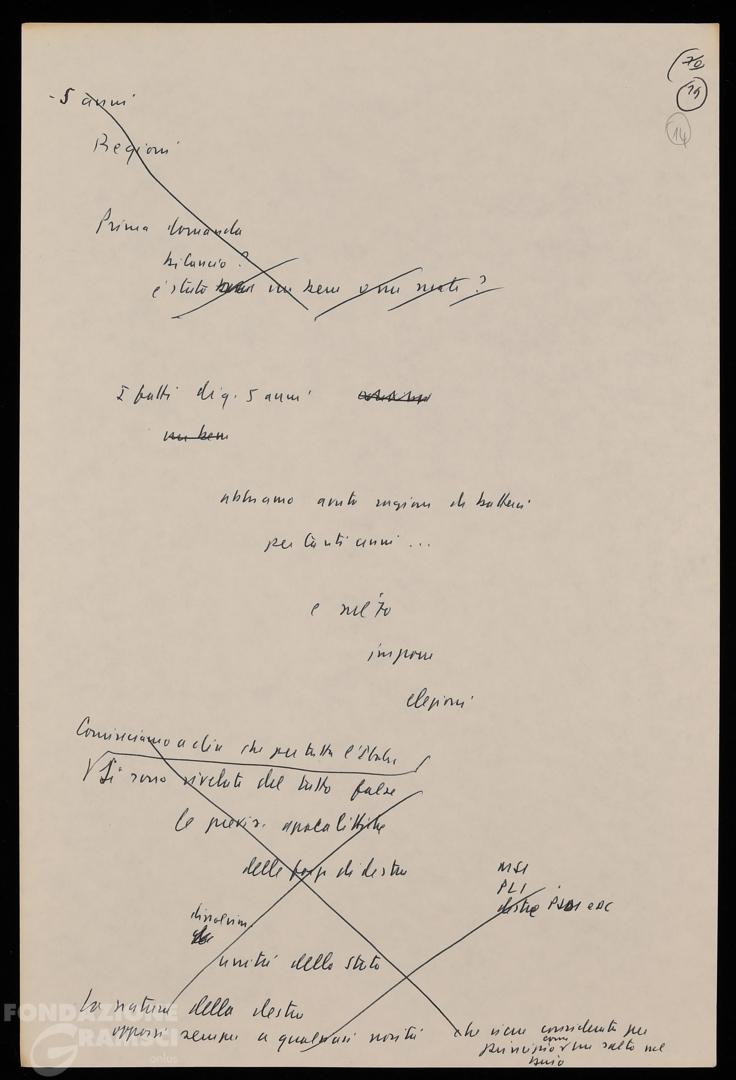 70
19
14
- 5 anni
Regioni
Prima domanda
bilancio?
è stato un bene o un male?
I fatti di q. 5 anni
un bene
abbiamo avuto ragione di batterci
per tanti anni ...
e nel '70
imporre
elezioni
Cominciamo a dire che per tutta l'Italia
Si sono rivelate del tutto false
le previs. apocalittiche
delle forze di destra
MSI
PLI
destre PSDI e DC
unità dello stato
La natura della destra
opporsi sempre a qualsiasi novità che viene considerata per
principio come un salto nel
buio
FONDAZIONE
GRAMSCI
onlus